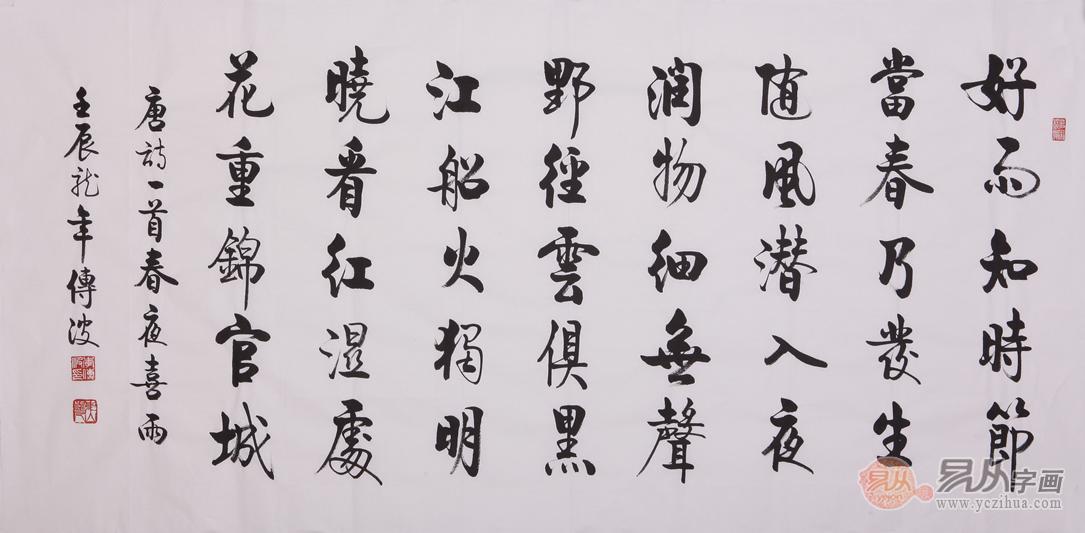 好雨知時節
當春乃發生
随風潜入夜
潤物細無聲
野徑雲俱黑
江船火獨明
曉看紅濕處
花重錦官城
唐詩一首春夜喜雨
壬辰龙年傳波
易从字画
www.yczihua.com